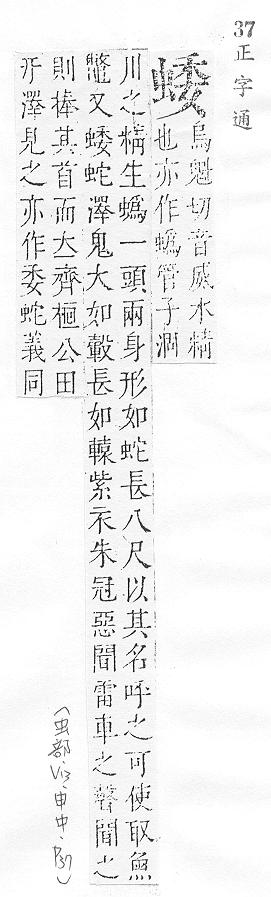 37正字通
蜲烏魁切音威水精
也亦作蟡管子涸
川之精生蟡一頭兩身形如蛇長八尺以其名呼之可使取魚
鼈又蜲蛇澤鬼大如轂長如轅紫衣朱冠惡聞雷車之聲聞之
則捧其首而立齊桓公田
于澤見之亦作委蛇義同
(虫部